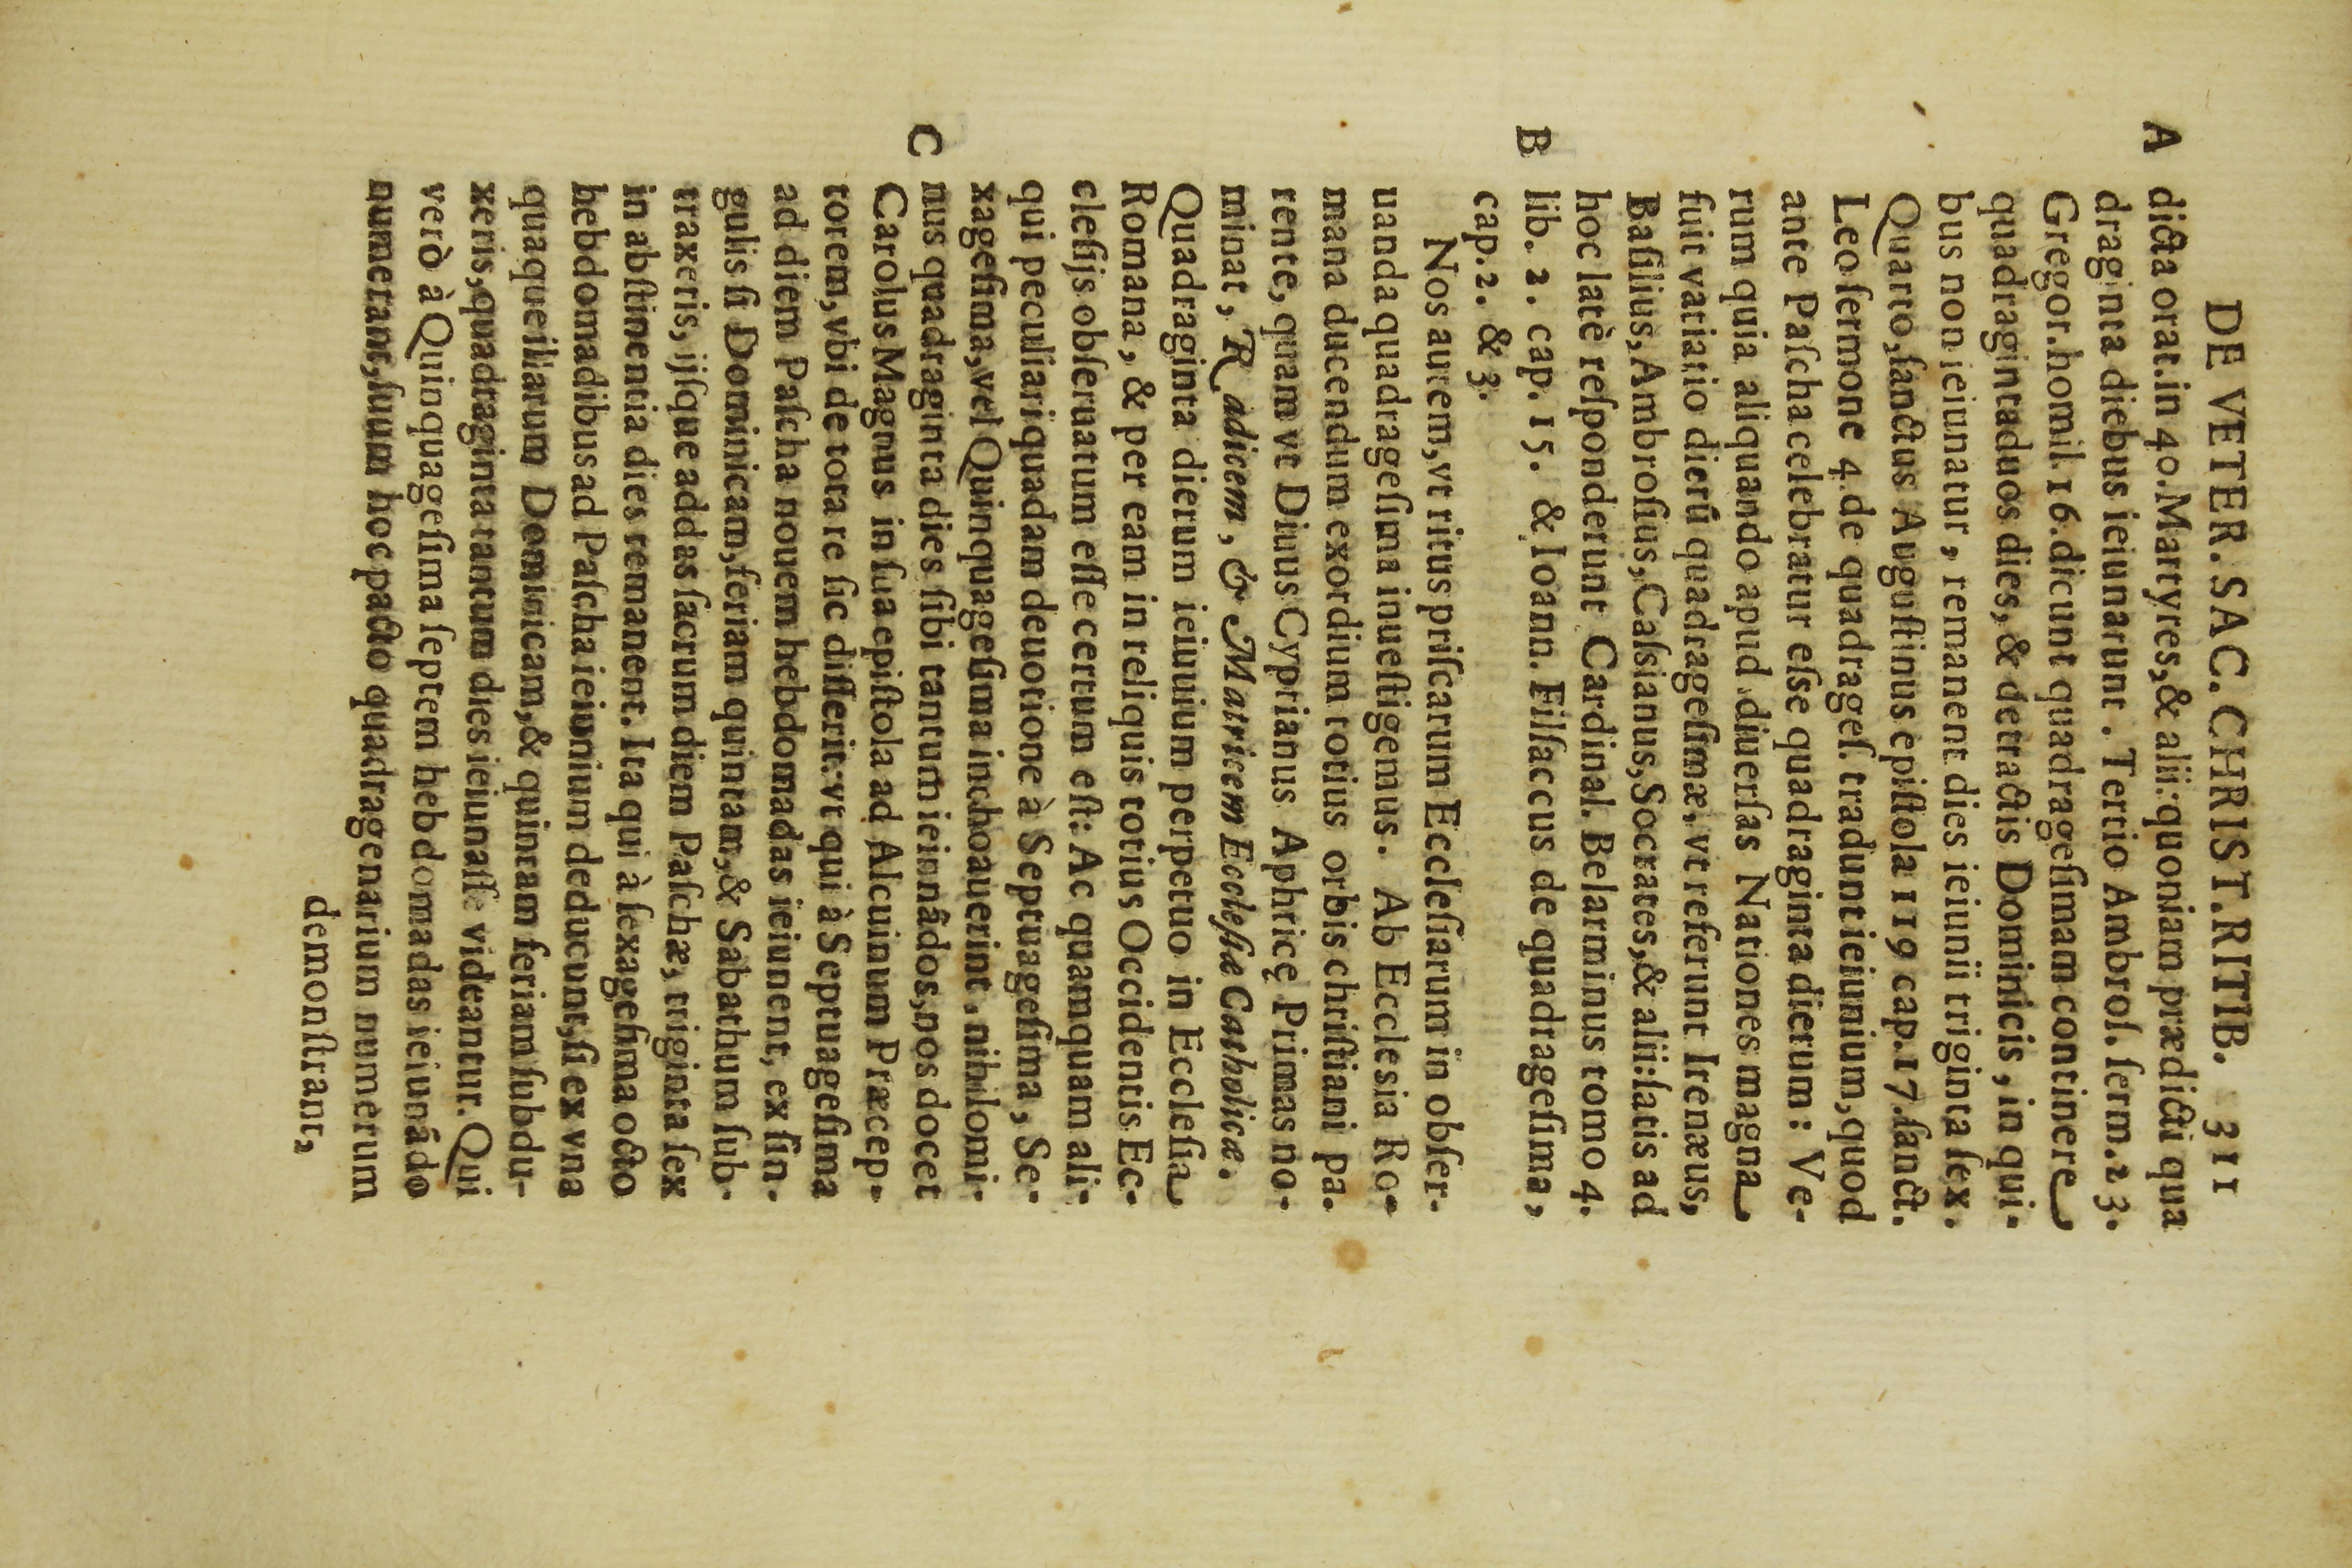 DE VETER. SAC. CHRIST. RITIB. 311
A dicta orat. in 40. Martyres, & alii: quoniam prædicti qua
draginta diebus ieiunarunt. Tertio Ambroſ. ſerm. 23.
Gregor. homil. 16. dicunt quadrageſimam continere
quadragintaduos dies, & detractis Dominicis, in qui-
bus non ieiunatur, remanent dies ieiunii triginta ſex.
Quarto, ſanctus Auguſtinus epiſtola 119 cap. 17. ſanct.
Leo ſermone 4. de quadrageſ. tradunt ieiunium, quod
ante Paſcha celebratur eſse quadraginta dierum: Ve-
rum quia aliquando apud diuerſas Nationes magna
fuit variatio dierū quadrageſimæ, vt referunt Irenæus,
Baſilius, Ambroſius, Caſsianus, Socrates, & alii: ſatis ad
hoc latè reſponderunt Cardinal. Belarminus tomo 4.
B lib. 2. cap. 15. & Ioann. Filſaccus de quadrageſima,
cap. 2. & 3.
Nos autem, vt ritus priſcarum Eccleſiarum in obſer-
uanda quadrageſima inueſtigemus. Ab Ecclesia Ro-
mana ducendum exordium totius orbis chriſtiani pa-
rente, quam vt Diuus Cyprianus Aphricę Primas no-
minat, Radicem, & Matricem Eccleſiæ Catholicæ.
Quadraginta dierum ieiuuium perpetuo in Eccleſia
Romana, & per eam in reliquis totius Occidentis Ec-
cleſijs obſeruatum eſſe certum eſt: Ac quamquam ali-
qui peculiari quadam deuotione à Septuageſima, Se-
xageſima, vel Quinquageſima inchoauerint, nihilomi-
C nus quadraginta dies ſibi tantum ieiunādos, nos docet
Carolus Magnus in ſua epiſtola ad Alcuinum Præcep-
torem, vbi de tota re ſic diſſerit: vt qui à Septuageſima
ad diem Paſcha nouem hebdomadas ieiunent, ex ſin-
gulis ſi Dominicam, feriam quintam, & Sabathum ſub-
traxeris, ijſque addas ſacrum diem Paſchæ, triginta ſex
in abſtinentia dies remanent. Ita qui à ſexageſima octo
hebdomadibus ad Paſcha ieiunium deducunt, ſi ex vna
quaque illarum Dominicam, & quintam feriam ſubdu-
xeris, quadraginta tantum dies ieiunaſſe videantur. Qui
verò à Quinquageſima ſeptem hebdomadas ieiunādo
numerant, ſuum hoc pacto quadragenarium numerum
demonſtrant,